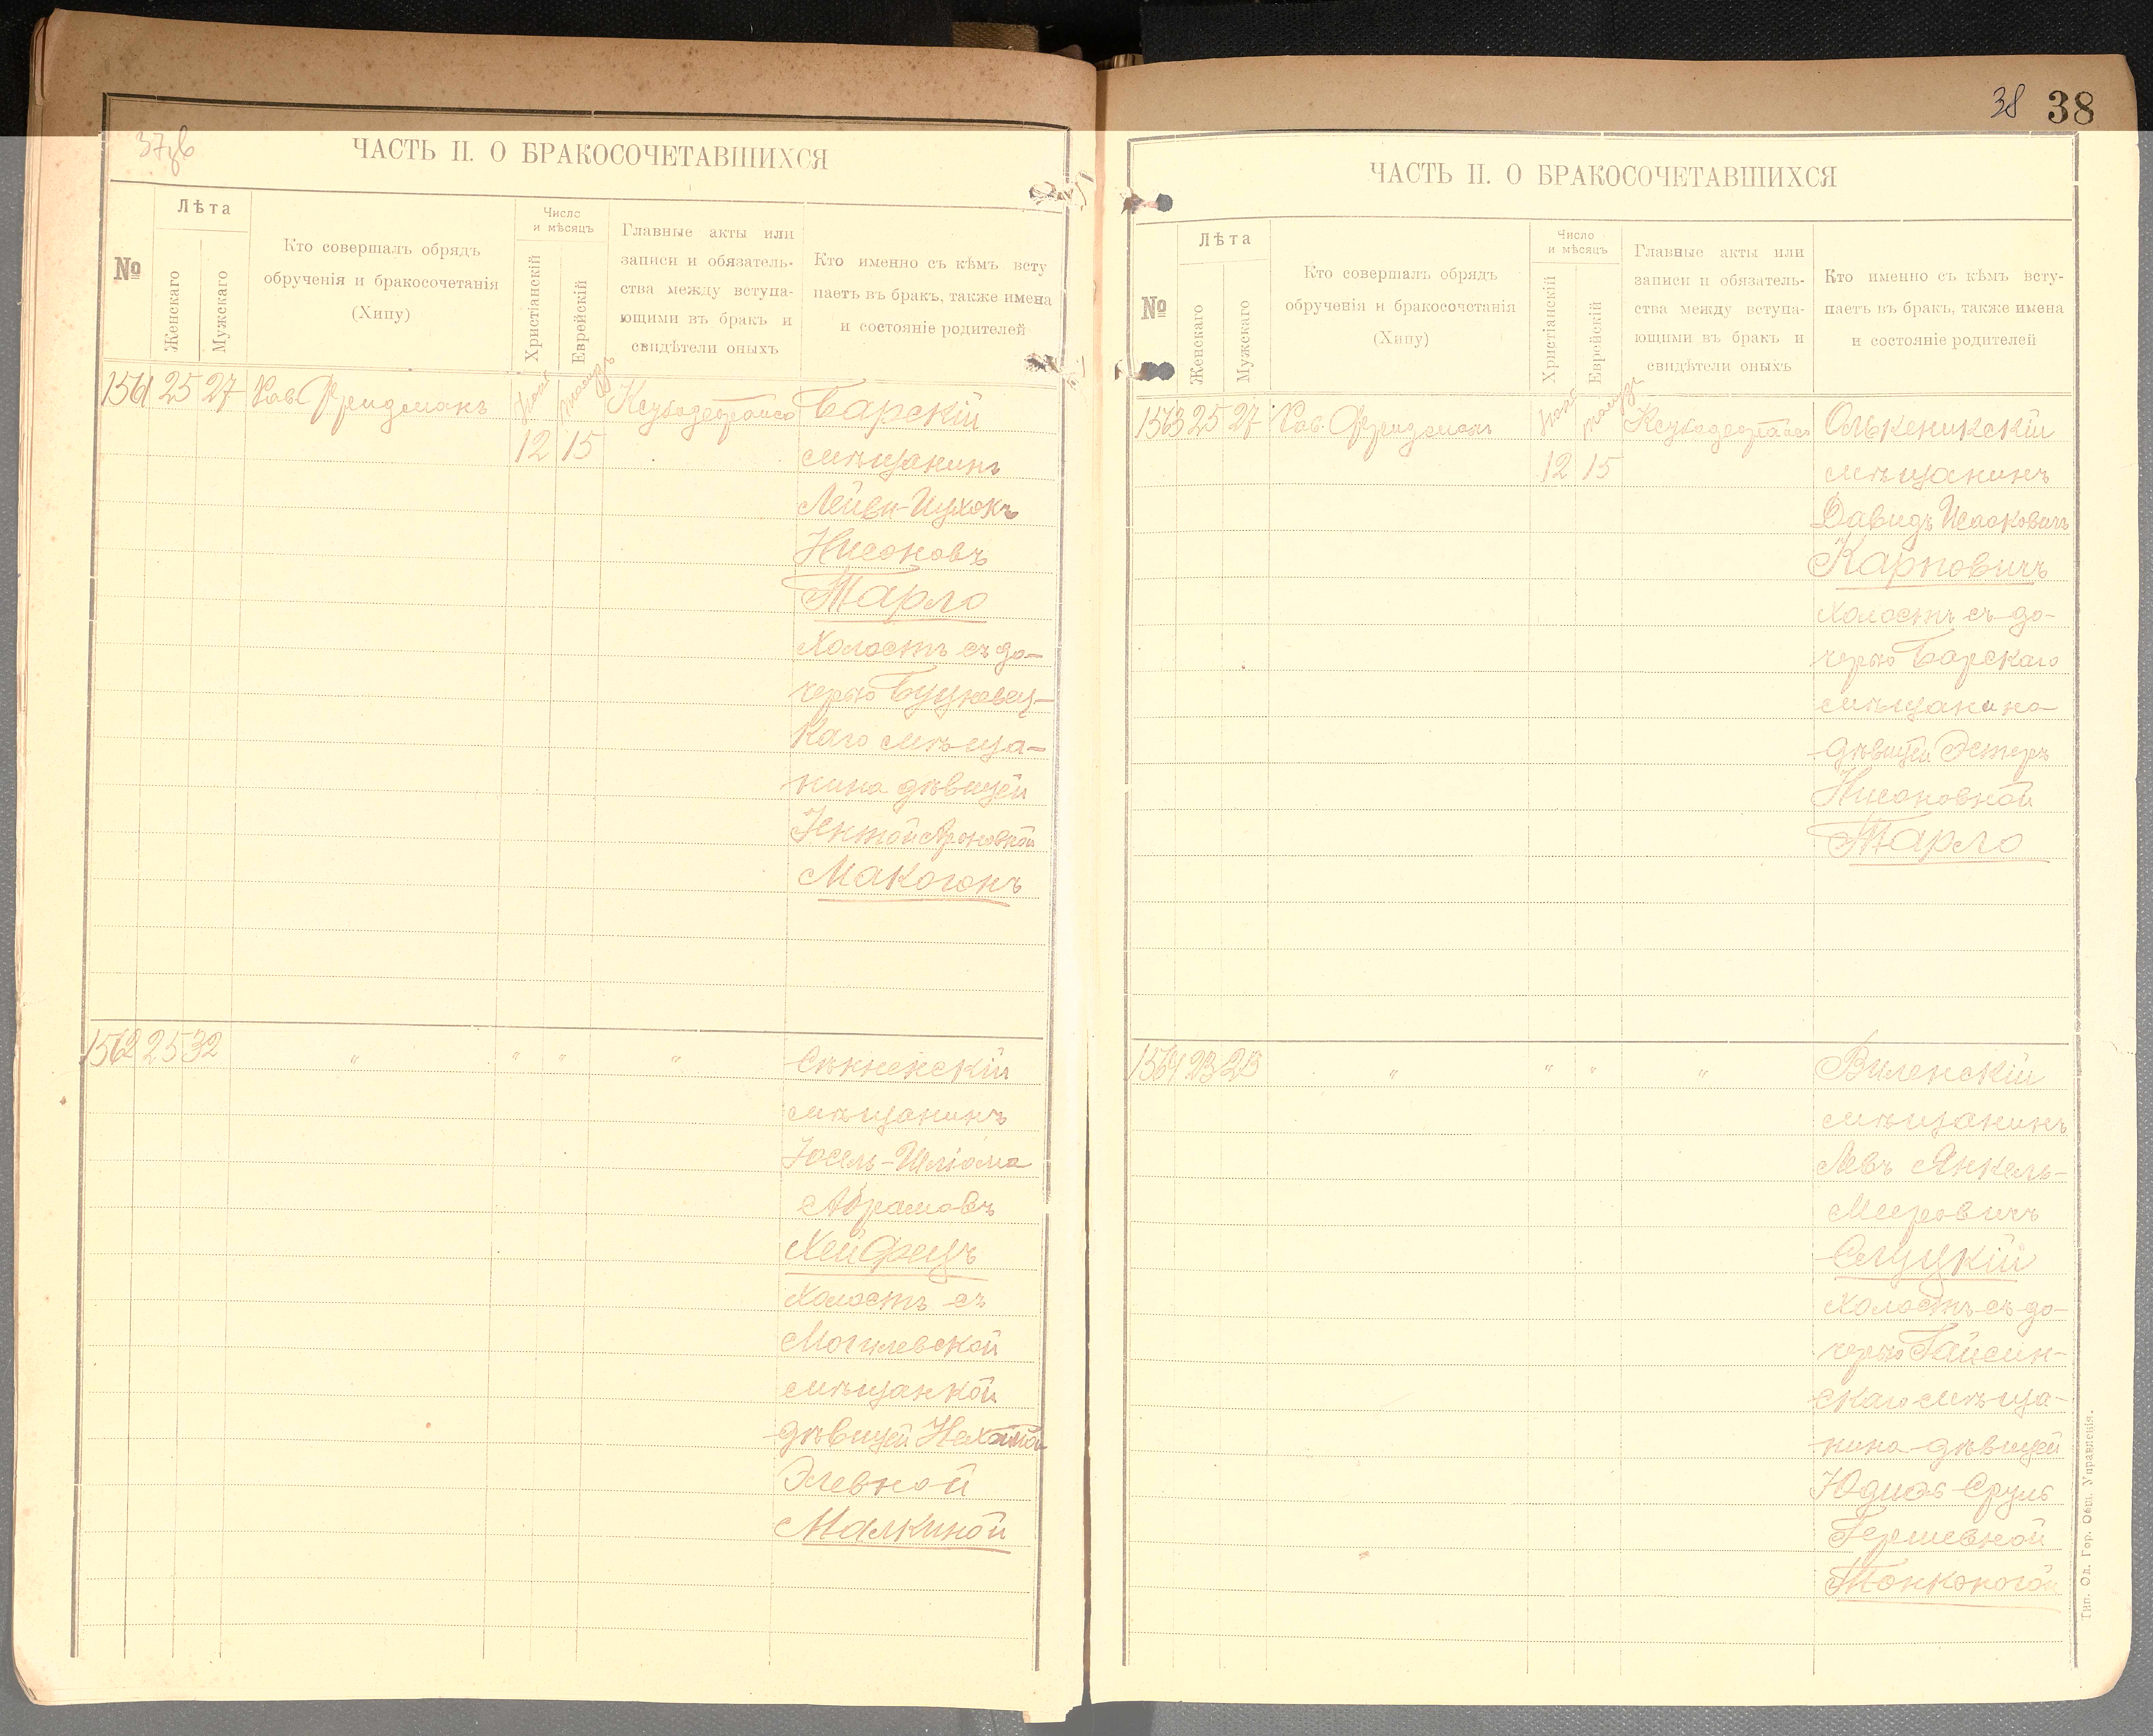 37об
ЧАСТЬ II. О БРАКОСОЧЕТАВШИХСЯ
№
Лѣта
Женскаго
Мужскаго
Кто совершалъ обрядъ
обрученія и бракосочетанія
(Хипу)
Число
и мѣсяцъ
Христіанскій
Еврейскій
Главные акты или
записи и обязатель-
ства между вступа-
ющими въ бракъ и
свидѣтели оныхъ
Кто именно съ кѣмъ всту
паетъ въ бракъ, также имена
и состояніе родителей
1561 25 27 Рав. Фридманъ
12 15
Барскій
мѣщанинъ
Лейви-Ицхокъ
Нисоновъ
Тарло
холостъ съ до-
черью
каго мѣща-
нина дѣвицей
Ароновной
Макогонъ
1562 25 32 " " " "
Сѣнненскій
мѣщанинъ
Іосель-Шліома
Абрамовъ
Хейфецъ
холостъ съ
Могилевской
мѣщанкой
дѣвицей
Элевной
Малкиной
38 38
ЧАСТЬ II. О БРАКОСОЧЕТАВШИХСЯ
№
Лѣта
Женскаго
Мужскаго
Кто совершалъ обрядъ
обрученія и бракосочетанія
(Хипу)
Число
и мѣсяцъ
Христіанскій
Еврейскій
Главные акты или
записи и обязатель-
ства между вступа-
ющими въ бракъ и
свидѣтели оныхъ
Кто именно съ кѣмъ всту-
паетъ въ бракъ, также имена
и состояніе родителей
1563 25 27 Рав. Фридманъ
12 15
Олькеникскій
мѣщанинъ
Давидъ Исаоковичъ
Карповичъ
холостъ съ до-
черью Барскаго
мѣщанина
дѣвицей Эстеръ
Нисоновной
Тарло
1564 23 23 " " " "
Виленскій
мѣщанинъ
Левъ Янкель-
Меировичъ
Слуцкій
холостъ съ до-
черью Гайсин-
скаго мѣща-
нина дѣвицей
Юдисъ Сруль
Гершевной
Тонконогой
Тип. Од. Гор. Общ. Управленія.